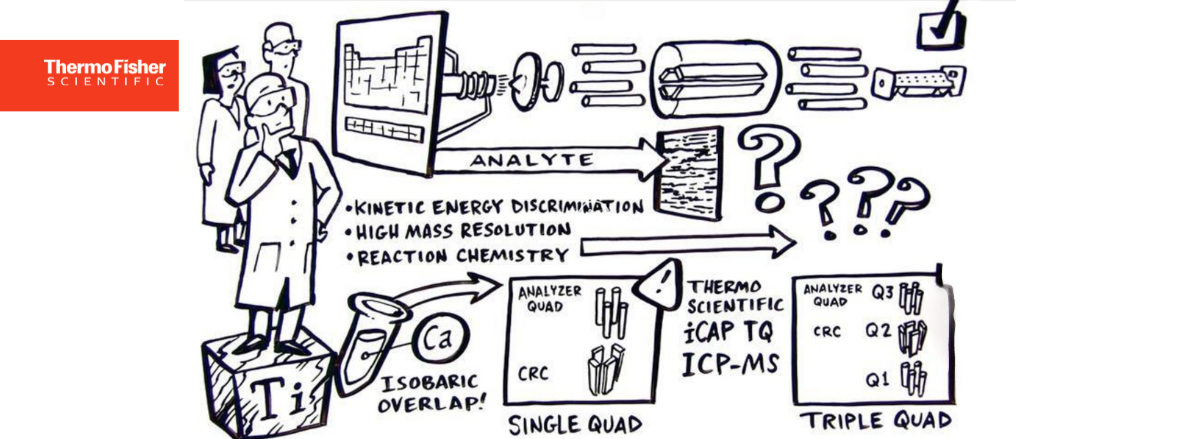 ThermoFisher
SCIENTIFIC
ANALYTE
•KINETIC ENERGY DISCRIMINATION
•HIGH MASS RESOLUTION
•REACTION CHEMISTRY
?
???
Ti
Ca
ISOBARIC
OVERLAP!
ANALYZER
QUAD
CRC
SINGLE QUAD
!
THERMO
SCIENTIFIC
iCAP TQ
ICP-MS
ANALYZER
QUAD
Q3
CRC
Q2
Q1
TRIPLE QUAD